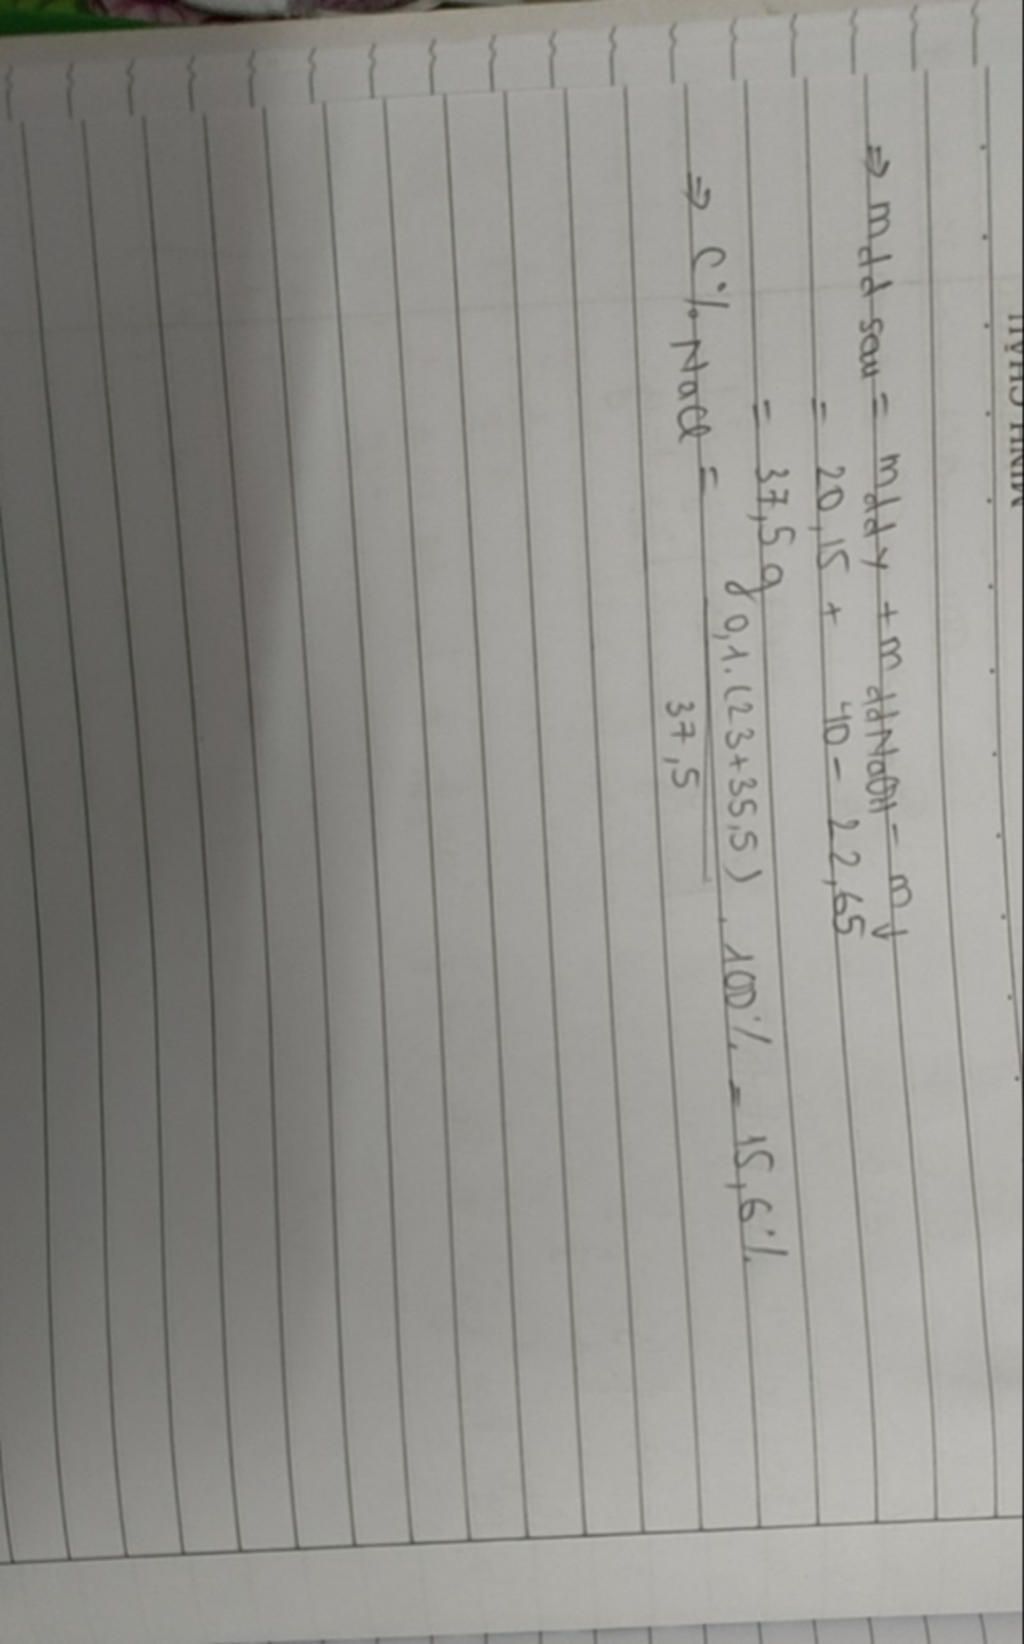 ⇒ mdd sau = mdd Y + m ddNaOH - m↓
= 20,15 + 40 - 22,65
= 37,5g
⇒ C% NaCl = 0,1.(23+35,5) / 37,5 . 100% = 15,6%